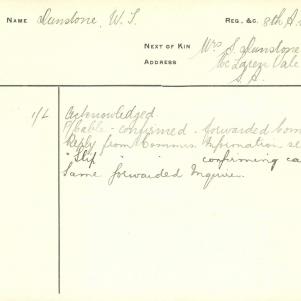 NAME Dunstone, W. S. REG. &C. 8th
NEXT OF KIN Mrs S. Dunstone
ADDRESS McLaren Vale
S.A.
Acknowledged
Cable - confirmed - forwarded
Reply from Commns Information
"Slip confirming
Same forwarded Inquirer.